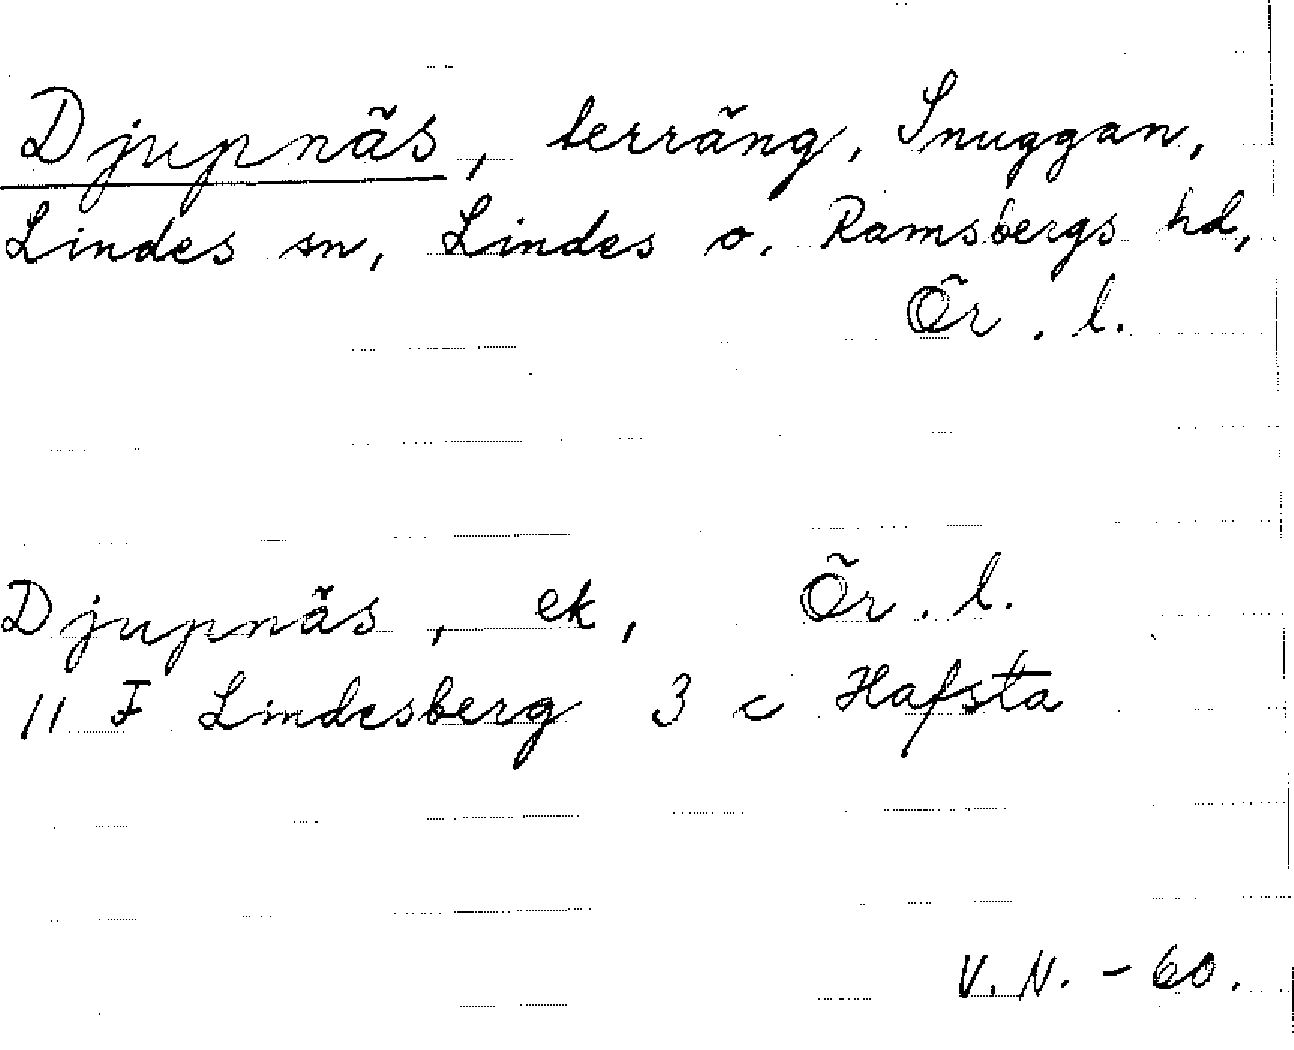 Djupnäs, terräng, Snuggan,
Lindes sn, Lindes o. Ramsbergs hd,
Ör. l.
Djupnäs, ek, Ör. l.
11 F Lindesberg 3 c Hafsta
V.N. - 60.